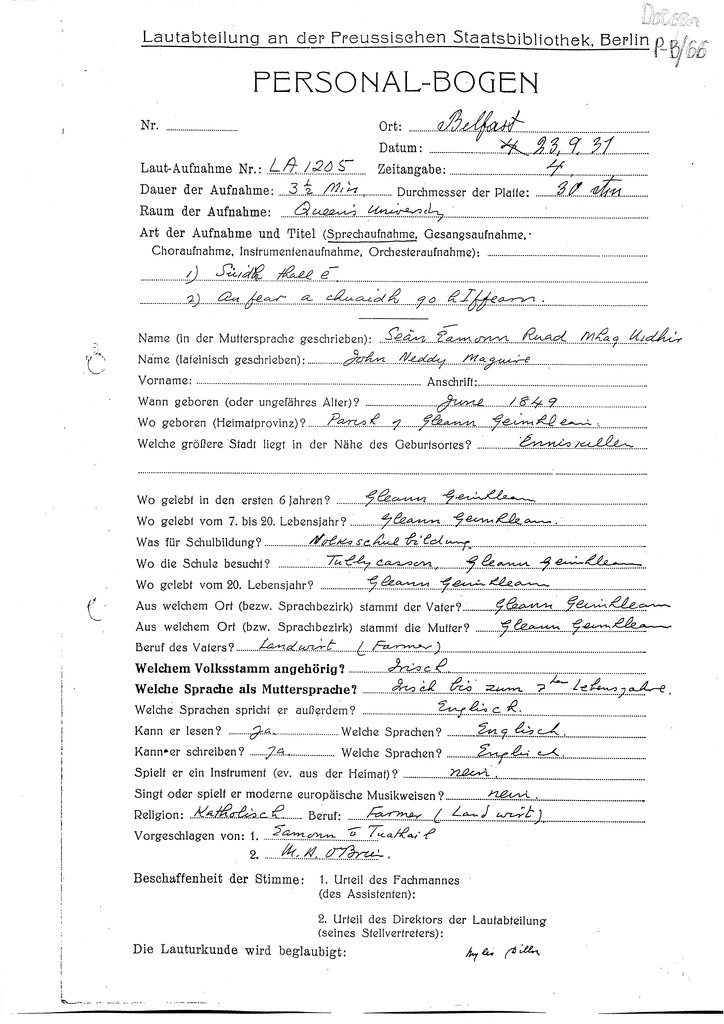 Doegen
P-B/66
Lautabteilung an der Preussischen Staatsbibliothek, Berlin
PERSONAL-BOGEN
Nr. Ort: Belfast
Datum: 23.9.31
Laut-Aufnahme Nr.: LA 1205 Zeitangabe: 4
Dauer der Aufnahme: 3½ Min. Durchmesser der Platte: 30 ctm
Raum der Aufnahme: Queen's University
Art der Aufnahme und Titel (Sprechaufnahme, Gesangsaufnahme,
Choraufnahme, Instrumentenaufnahme, Orchesteraufnahme):
1) Suidh thall é
2) An fear a chuaidh go hIffearn.
Name (in der Muttersprache geschrieben): Seán Éamonn Ruad Mhag Uidhir
Name (lateinisch geschrieben): John Neddy Maguire
Vorname: Anschrift:
Wann geboren (oder ungefähres Alter)? June 1849
Wo geboren (Heimatprovinz)? Parish of Gleann Geimhleam.
Welche größere Stadt liegt in der Nähe des Geburtsortes? Enniskillen
Wo gelebt in den ersten 6 Jahren? Gleann Geimhleam
Wo gelebt vom 7. bis 20. Lebensjahr? Gleann Geimhleam.
Was für Schulbildung? Volksschulbildung
Wo die Schule besucht? Tullycarson, Gleann Geimhleam
Wo gelebt vom 20. Lebensjahr? Gleann Geimhleam
Aus welchem Ort (bezw. Sprachbezirk) stammt der Vater? Gleann Geimhleam
Aus welchem Ort (bezw. Sprachbezirk) stammt die Mutter? Gleann Geimhleam
Beruf des Vaters? Landwirt (Farmer)
Welchem Volksstamm angehörig? Irisch
Welche Sprache als Muttersprache? Irisch bis zum 7ten Lebensjahre.
Welche Sprachen spricht er außerdem? Englisch.
Kann er lesen? Ja Welche Sprachen? Englisch.
Kann er schreiben? Ja Welche Sprachen? Englisch.
Spielt er ein Instrument (ev. aus der Heimat)? nein.
Singt oder spielt er moderne europäische Musikweisen? nein.
Religion: Katholisch Beruf: Farmer (Landwirt)
Vorgeschlagen von: 1. Eamonn Ó Tuathail
2. M. A. O'Brien.
Beschaffenheit der Stimme: 1. Urteil des Fachmannes
(des Assistenten):
2. Urteil des Direktors der Lautabteilung
(seines Stellvertreters):
Die Lauturkunde wird beglaubigt: Myles Dillon